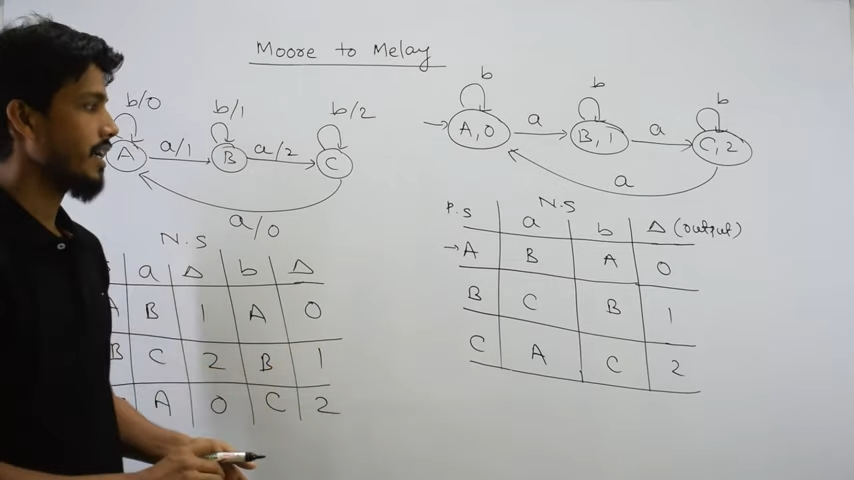 Moore to Melay
b/0
b/1
b/2
A
a/1
B
a/2
C
a/0
N.S
a Δ b Δ
B 1 A 0
B C 2 B 1
A 0 C 2
b
b
b
A,0
a
B,1
a
C,2
a
P.S
N.S
a b Δ (output)
→A B A 0
B C B 1
C A C 2